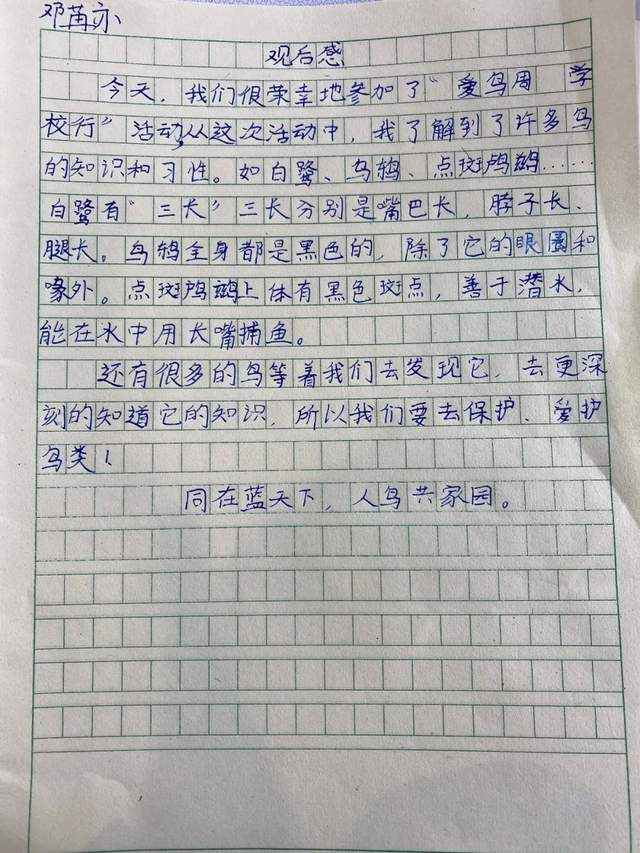 邓苒亦
观后感
今天,我们很荣幸地参加了“爱鸟周 学
校行”活动从这次活动中,我了解到了许多鸟
的知识和习性。如白鹭、乌鸫、点斑鸬鹚……
白鹭有“三长”三长分别是嘴巴长,脖子长、
腿长。乌鸫全身都是黑色的,除了它的眼圈和
喙外。点斑鸬鹚上体有黑色斑点,善于潜水,
能在水中用长嘴捕鱼。
还有很多的鸟等着我们去发现它,去更深
刻的知道它的知识,所以我们要去保护、爱护
鸟类!
同在蓝天下,人鸟共家园。